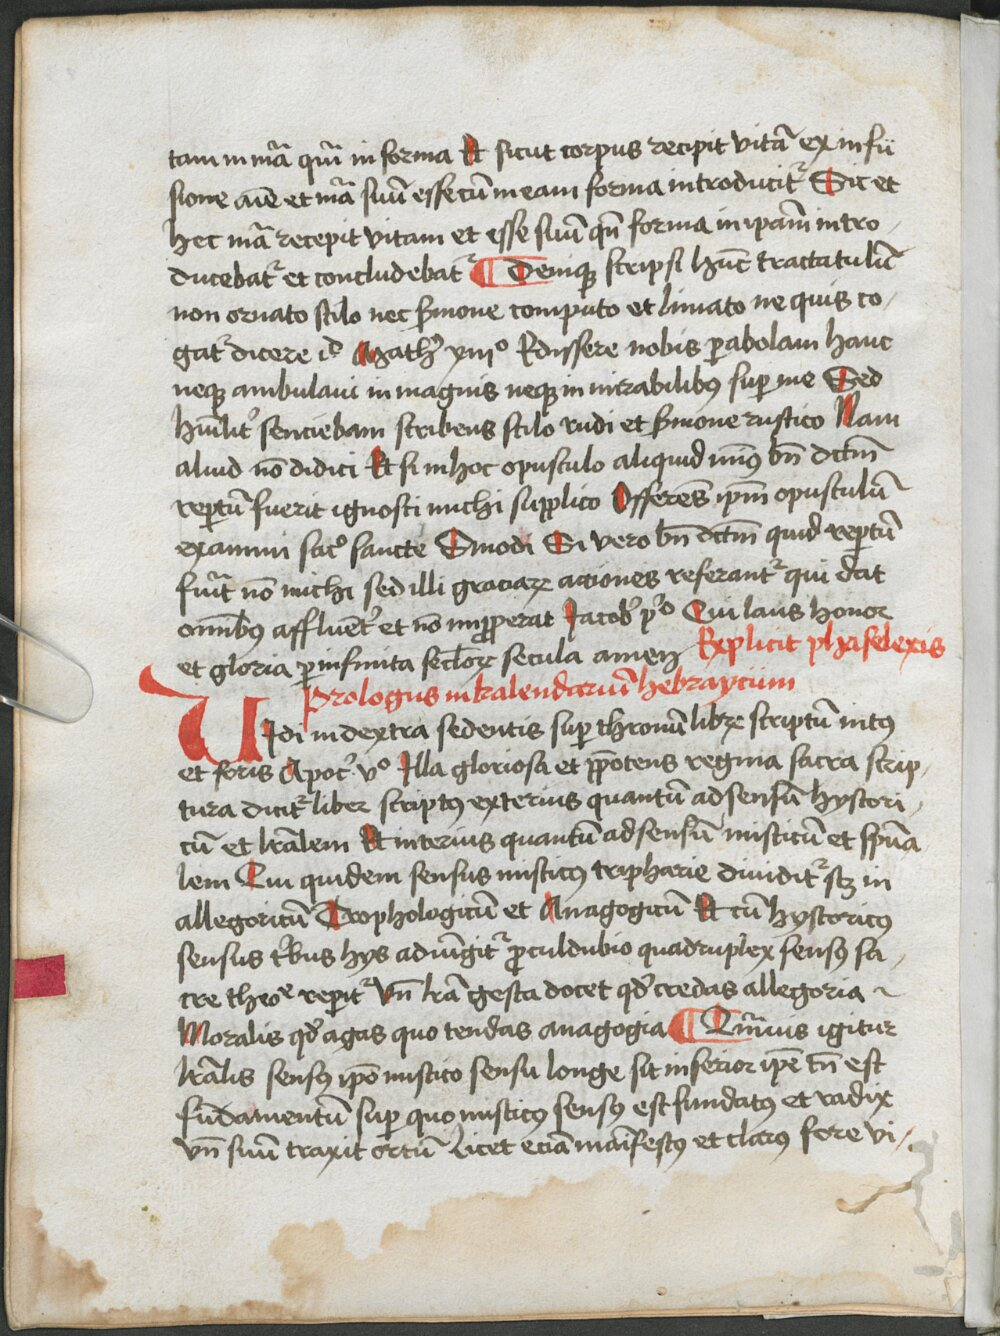 tam in mr̄a qm̄ in forma Et sicut corpus recipit vitā ex infu
sione aīe et mr̄a suū esse cum in eam forma introducit᷑ Sic et
hec mr̄a recepit vitam et esse suū qn̄ forma in ipam̄ intro
ducebat᷑ et concludebat᷑ ¶ Deniqꝫ scripsi hūc tractatulū
non ornato stilo nec ẜmone computo et limato ne quis co
gat᷑ dicere id̄ Math᷑ xiiiº Edissere nobis ꝑabolam hanc
neqꝫ ambulaui in magnis neqꝫ in mirabilibꝯ suꝑ me Sed
hūilit᷑ senciebam scribens stilo rudi et ẜmone rustico Nam
aliud nō didici Et si in hoc opusculo aliquid minꝯ bn̄ dictm̄
reꝑtū fuerit ignosci michi supplico Offerēs ipm̄ opusculū
examini sac᷑ sancte Sinodi Si vero bn̄ dictm̄ quid reꝑtū
fuīt nō michi sed illi graciaꝝ actiones referant᷑ qui dat
omībꝯ affluēt᷑ et nō impropperat Jacob᷑ pºº Cui laus honor
et gloria ꝑ infinita secl̄oꝝ secula amen Explicit phaselexis
Prologus in kalendariū hebraycum
VIdi in dextra sedentis suꝑ thronū librꝫ scriptū intꝯ
et foris Apoc᷑ vº Illa gloriosa et p̄potens regina sacra scrip
tura dicit᷑ liber scriptꝯ exterius quantū ad sensū hystori
cū et lr̄alem Et interius quantū ad sensū misticū et spūa
lem Qui quidem sensus misticꝯ tripharie diuidit᷑ scꝫ in
allegoricū Trophologicū et Anagogicū Et cū hystoricꝯ
sensus t᷑bus hys adiūgit᷑ ꝓculdubio quadruplex sensꝯ sa
cre theoᵉ reꝑit᷑ Vn̄ lr̄a gesta docet qd̄ credas allegoria
Moralis qd̄ agas quo tendas anagogia ¶ Quāuis igitur
lr̄alis sensꝯ ipō mistico sensu longe sit inferior ipē tn̄ est
fūdamentū suꝑ quo misticꝯ sensꝯ est fundatꝯ et radix
vn̄ suū traxit ortū Licet eciā manīfestꝯ et clarꝯ fore vi